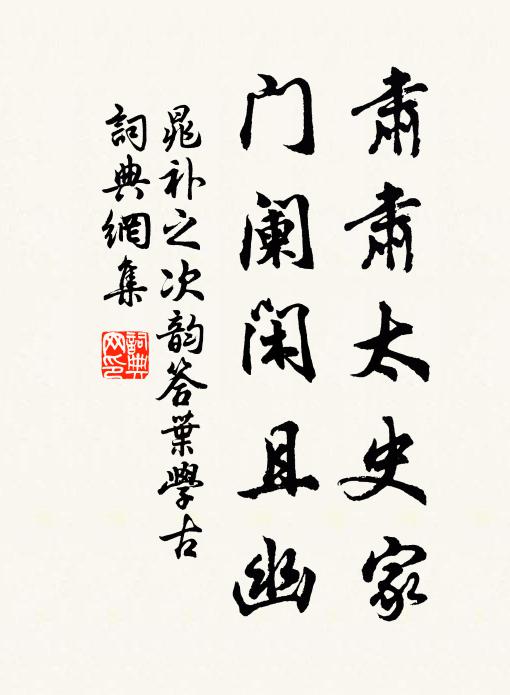 肃肃太史家
门阑闲且幽
晁补之次韵答葉學古
詞典網集
詞典网印